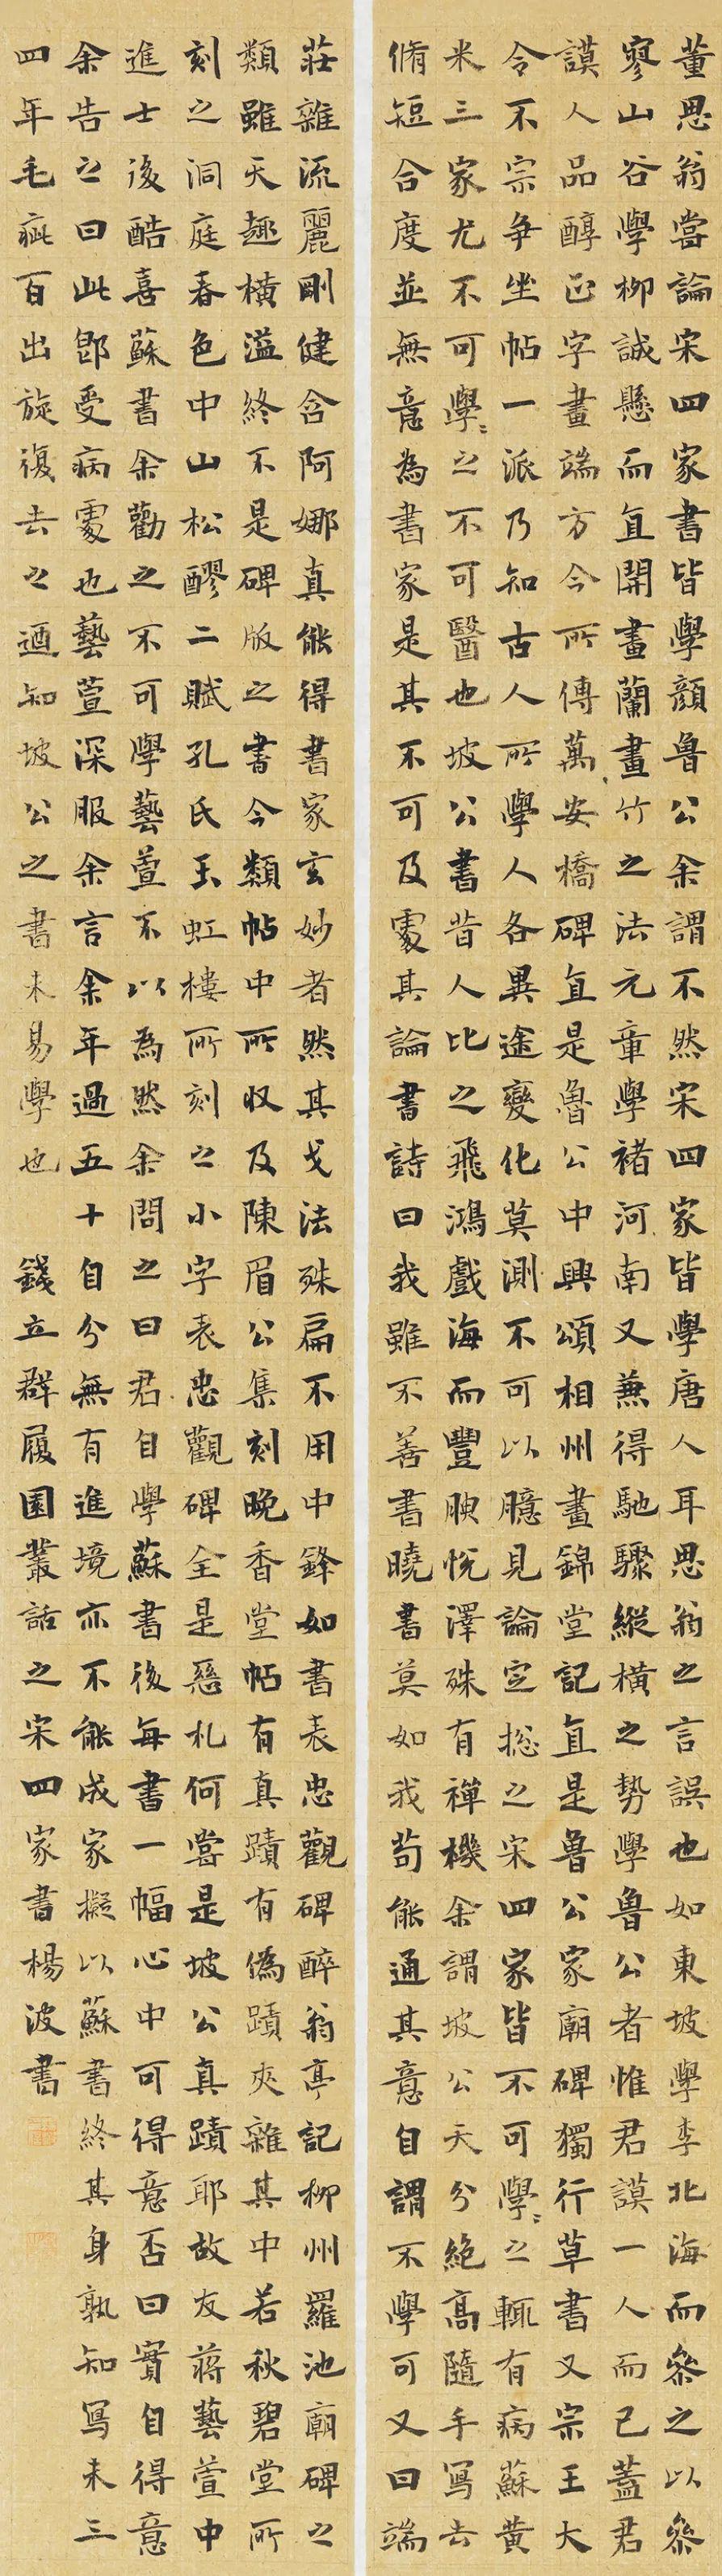 董思翁嘗論宋四家書皆學顏魯公余謂不然宋四家皆學唐人耳思翁之言誤也如東坡學李北海而叅之以叅
寥山谷學柳誠懸而直開畫蘭畫竹之法元章學褚河南又兼得馳驟縱橫之勢學魯公者惟君謨一人而已蓋君
謨人品醇正字畫端方今所傳萬安橋碑直是魯公中興頌相州晝錦堂記直是魯公家廟碑獨行草書又宗王大
令不宗争坐帖一派乃知古人所學人各異途變化莫測不可以臆見論定揔之宋四家皆不可學〻之輒有病蘇黃
米三家尤不可學〻之不可醫也坡公書昔人比之飛鴻戲海而豐腴悅澤殊有禪機余謂坡公天分絶高隨手寫去
脩短合度並無意為書家是其不可及處其論書詩曰我雖不善書曉書莫如我苟能通其意自謂不學可又曰端
莊雜流麗剛健含阿娜真能得書家玄妙者然其戈法殊扁不用中鋒如書表忠觀碑醉翁亭記柳州羅池廟碑之
類雖天趣橫溢終不是碑版之書今類帖中所収及陳眉公集刻晚香堂帖有真蹟有偽蹟夾雜其中若秋碧堂所
刻之洞庭春色中山松醪二賦孔氏玉虹樓所刻之小字表忠觀碑全是惡札何嘗是坡公真蹟耶故友蔣藝萱中
進士後酷喜蘇書余勸之不可學藝萱不以為然余問之曰君自學蘇書後每書一幅心中可得意否曰實自得意
余告之曰此卽受病處也藝萱深服余言余年過五十自分無有進境亦不能成家擬以蘇書終其身孰知寫未三
四年毛疵百出旋復去之迺知坡公之書未易學也 錢立群履園叢話之宋四家書楊波書